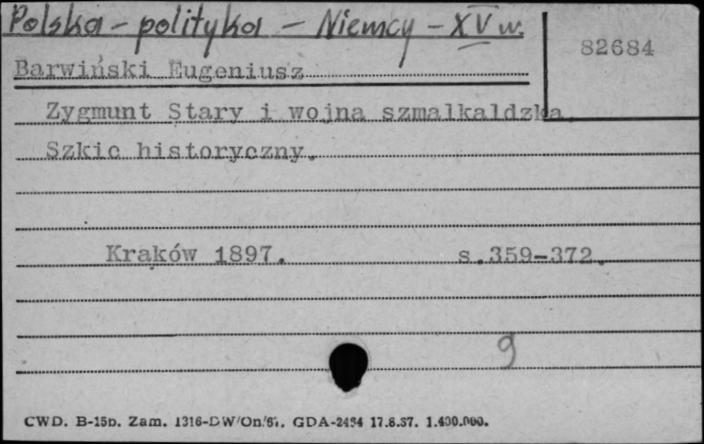 Polska - polityka - Niemcy - XV w.
82684
Barwiński Eugeniusz
Zygmunt Stary i wojna szmalkaldzka.
Szkic historyczny.
Kraków 1897. s.359-372.
9
CWD. B-15b. Zam. 1316-DW/On/67. GDA-2434 17.8.67. 1.400.000.